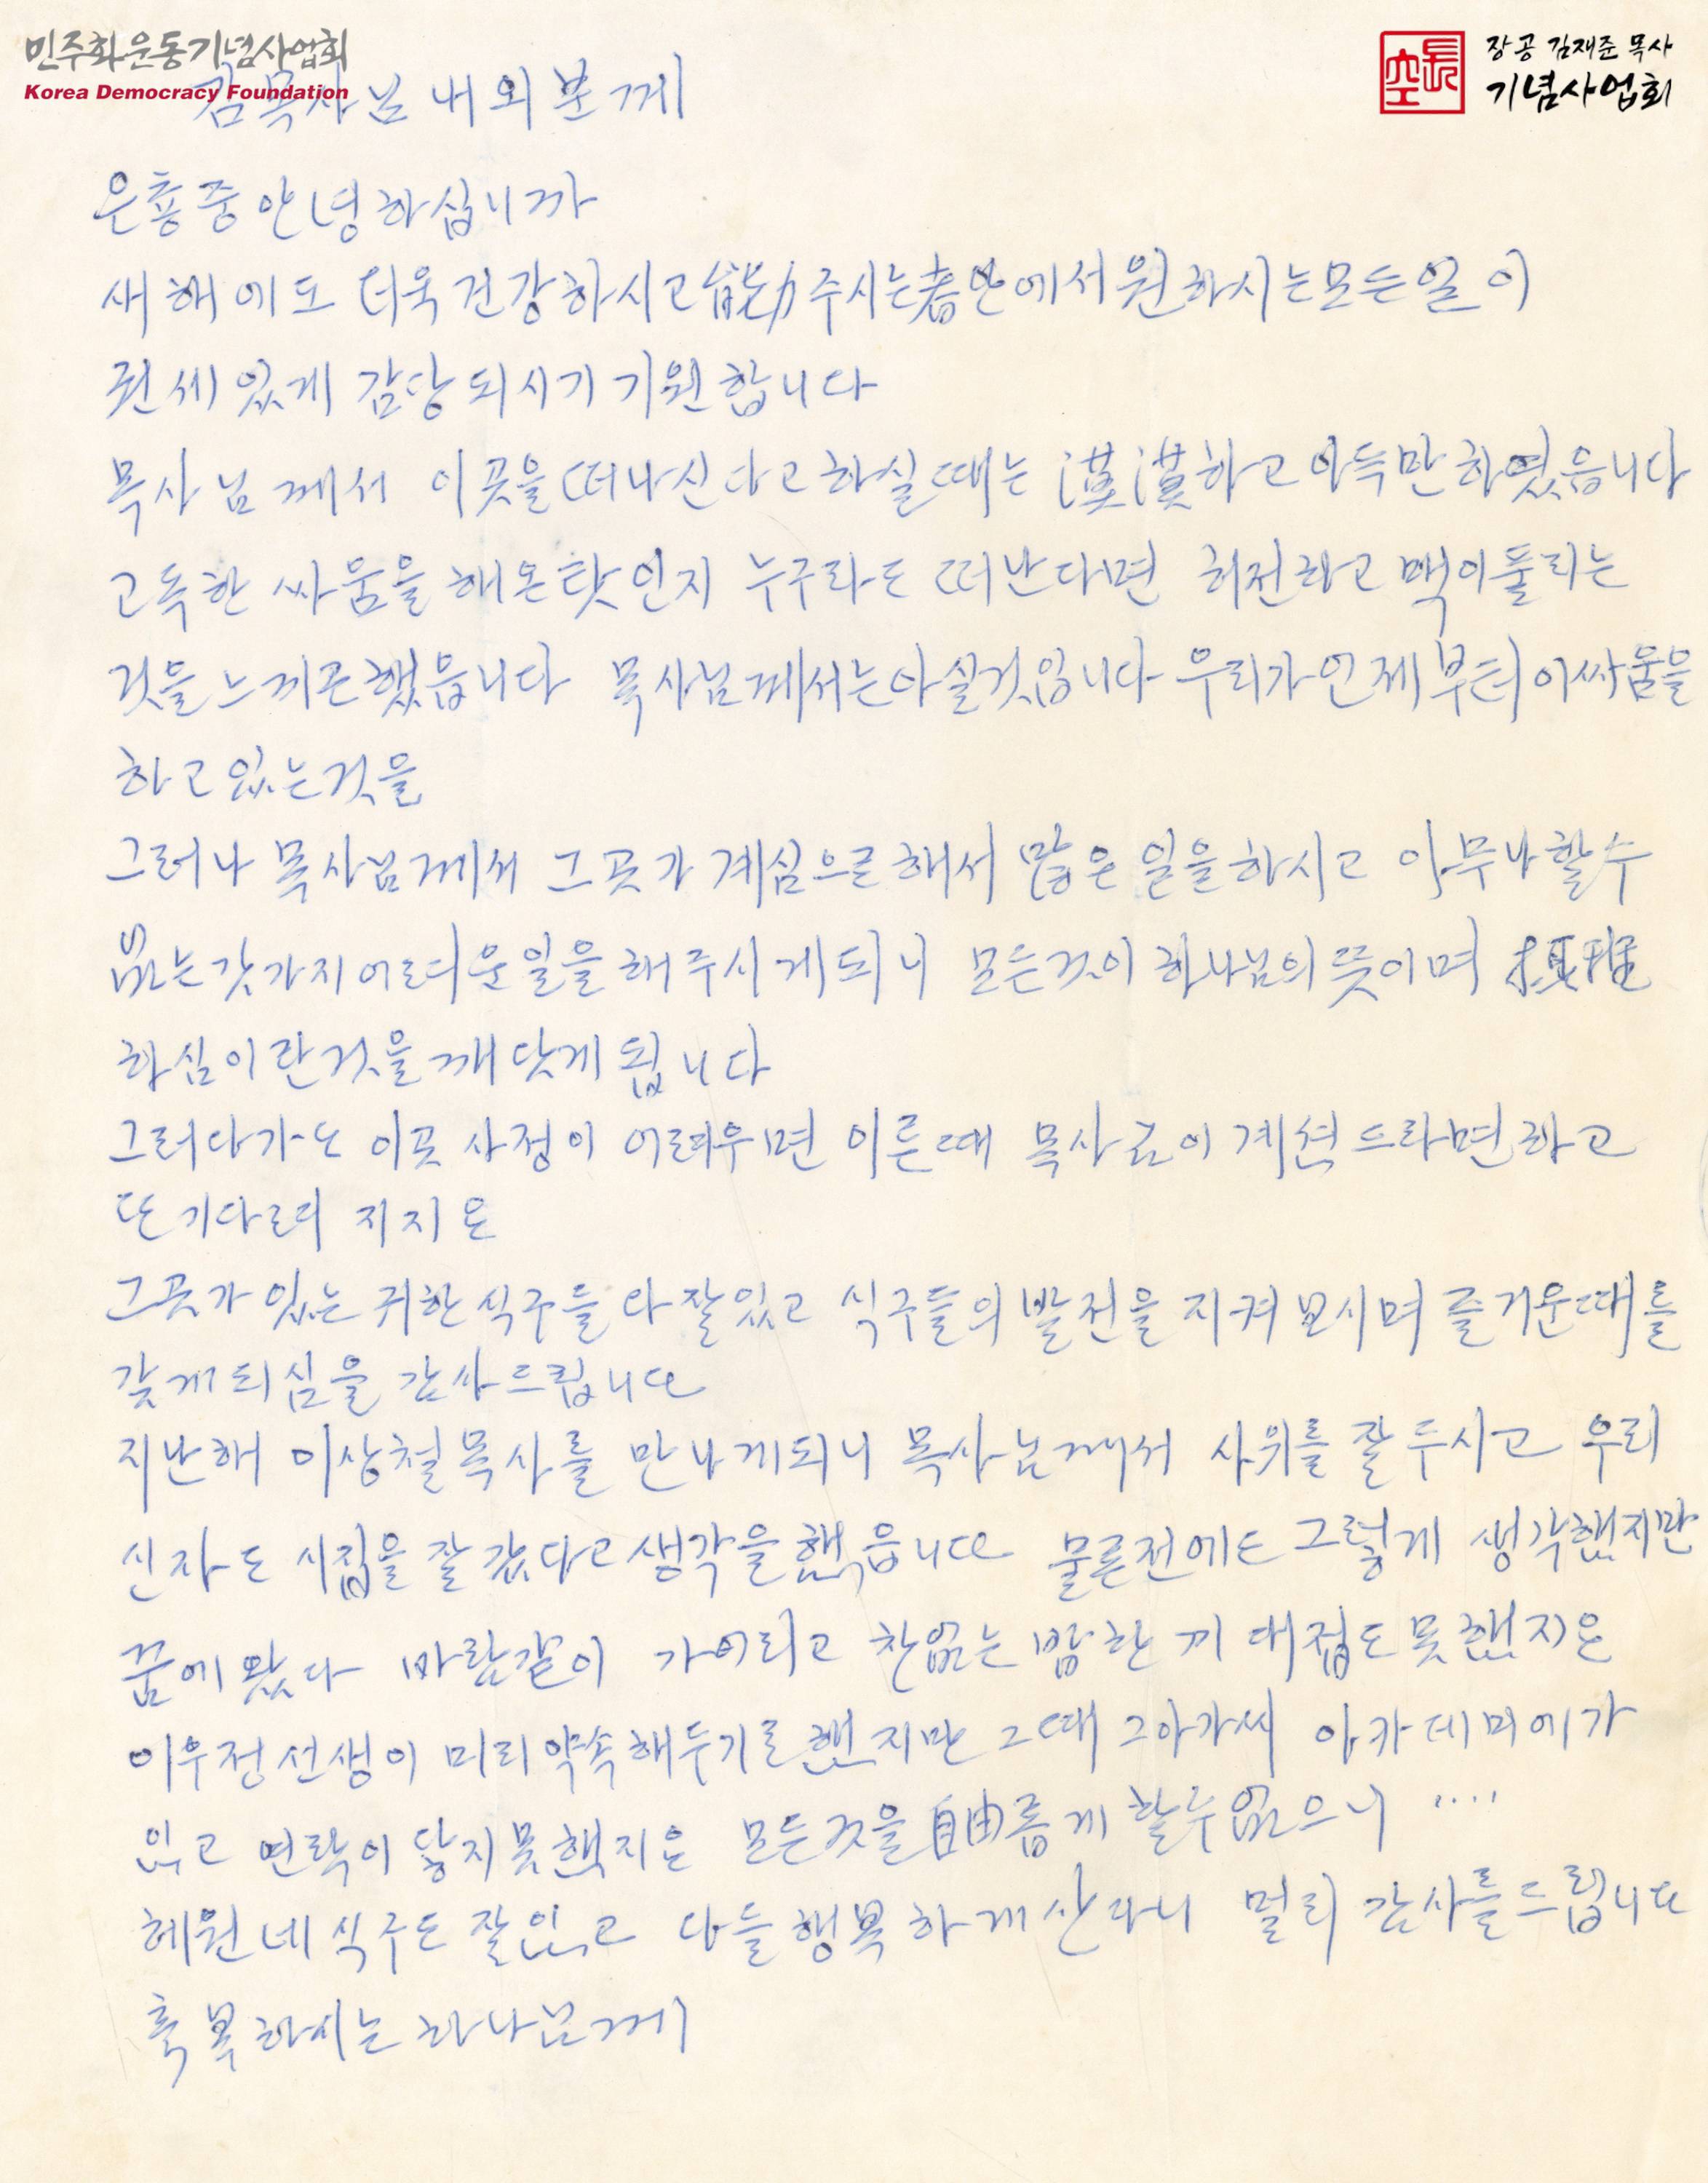 민주화운동기념사업회
Korea Democracy Foundation
장공 김재준 목사
기념사업회
김목사님 내외분께
은총중 안녕하십니까
새해에도 더욱 건강하시고 能力 주시는 者안에서 원하시는 모든일이
권세있게 감당되시기 기원합니다
목사님께서 이곳을 떠나신다고 하실때는 漠漠하고 아득만 하였읍니다
고독한 싸움을 해온 탓인지 누구라도 떠난다면 허전하고 맥이풀리는
것을 느끼곤했읍니다 목사님께서는 아실것입니다 우리가 언제부터 이싸움을
하고있는것을
그러나 목사님께서 그곳가 계심으로해서 많은 일을하시고 아무나할수
없는 갓가지 어려운일을 해주시게되니 모든것이 하나님의 뜻이며
하심이란것을 깨닷게 됩니다
그러다가도 이곳 사정이 어려우면 이른때 목사님이 계셨드라면하고
또 기다려 지지요
그곳가 있는 귀한식구들 다 잘있고 식구들의 발전을 지켜보시며 즐거운때를
갖게되심을 감사드립니다
지난해 이상철목사를 만나게되니 목사님께서 사위를 잘 두시고 우리
신자도 시집을 잘 갔다고 생각을 했읍니다 물론전에도 그렇게 생각했지만
꿈에 왔다 바람같이 가버리고 찬없는 밥한끼 대접도 못했지요
이우정선생이 미리 약속해두기로 했지만 그때 그아가씨 아카데미에가
있고 연락이 닿지못했지요 모든것을 自由롭게 할수없으니 ....
혜원네 식구도 잘있고 다들 행복하게 산다니 멀리 감사를드립니다
축복하시는 하나님께